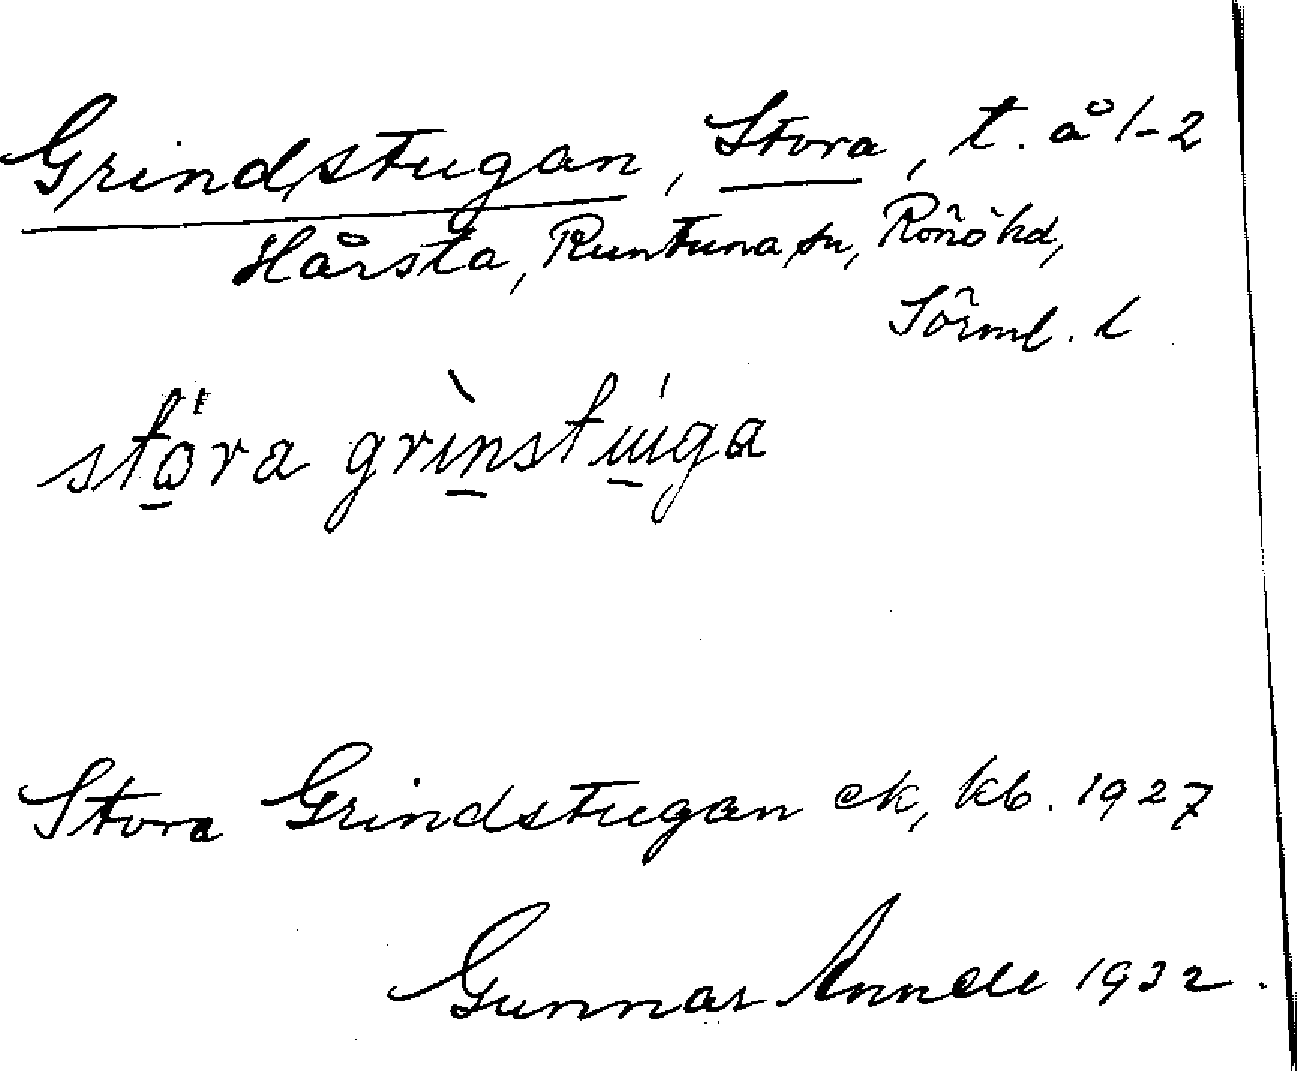 Grindstugan, Stora, t. å 1-2
Hårsta, Runtuna sn, Rönö hd,
Sörml. l
störa grìnstuga
Stora Grindstugan ek, kb. 1927
Gunnar Annell 1932.